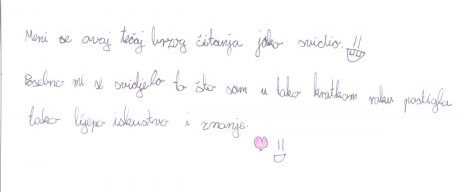 Meni se ovaj tečaj brzog čitanja jako svidio.
Posebno mi se svidjelo to što sam u tako kratkom roku postigla
tako lijepo iskustvo i znanje.